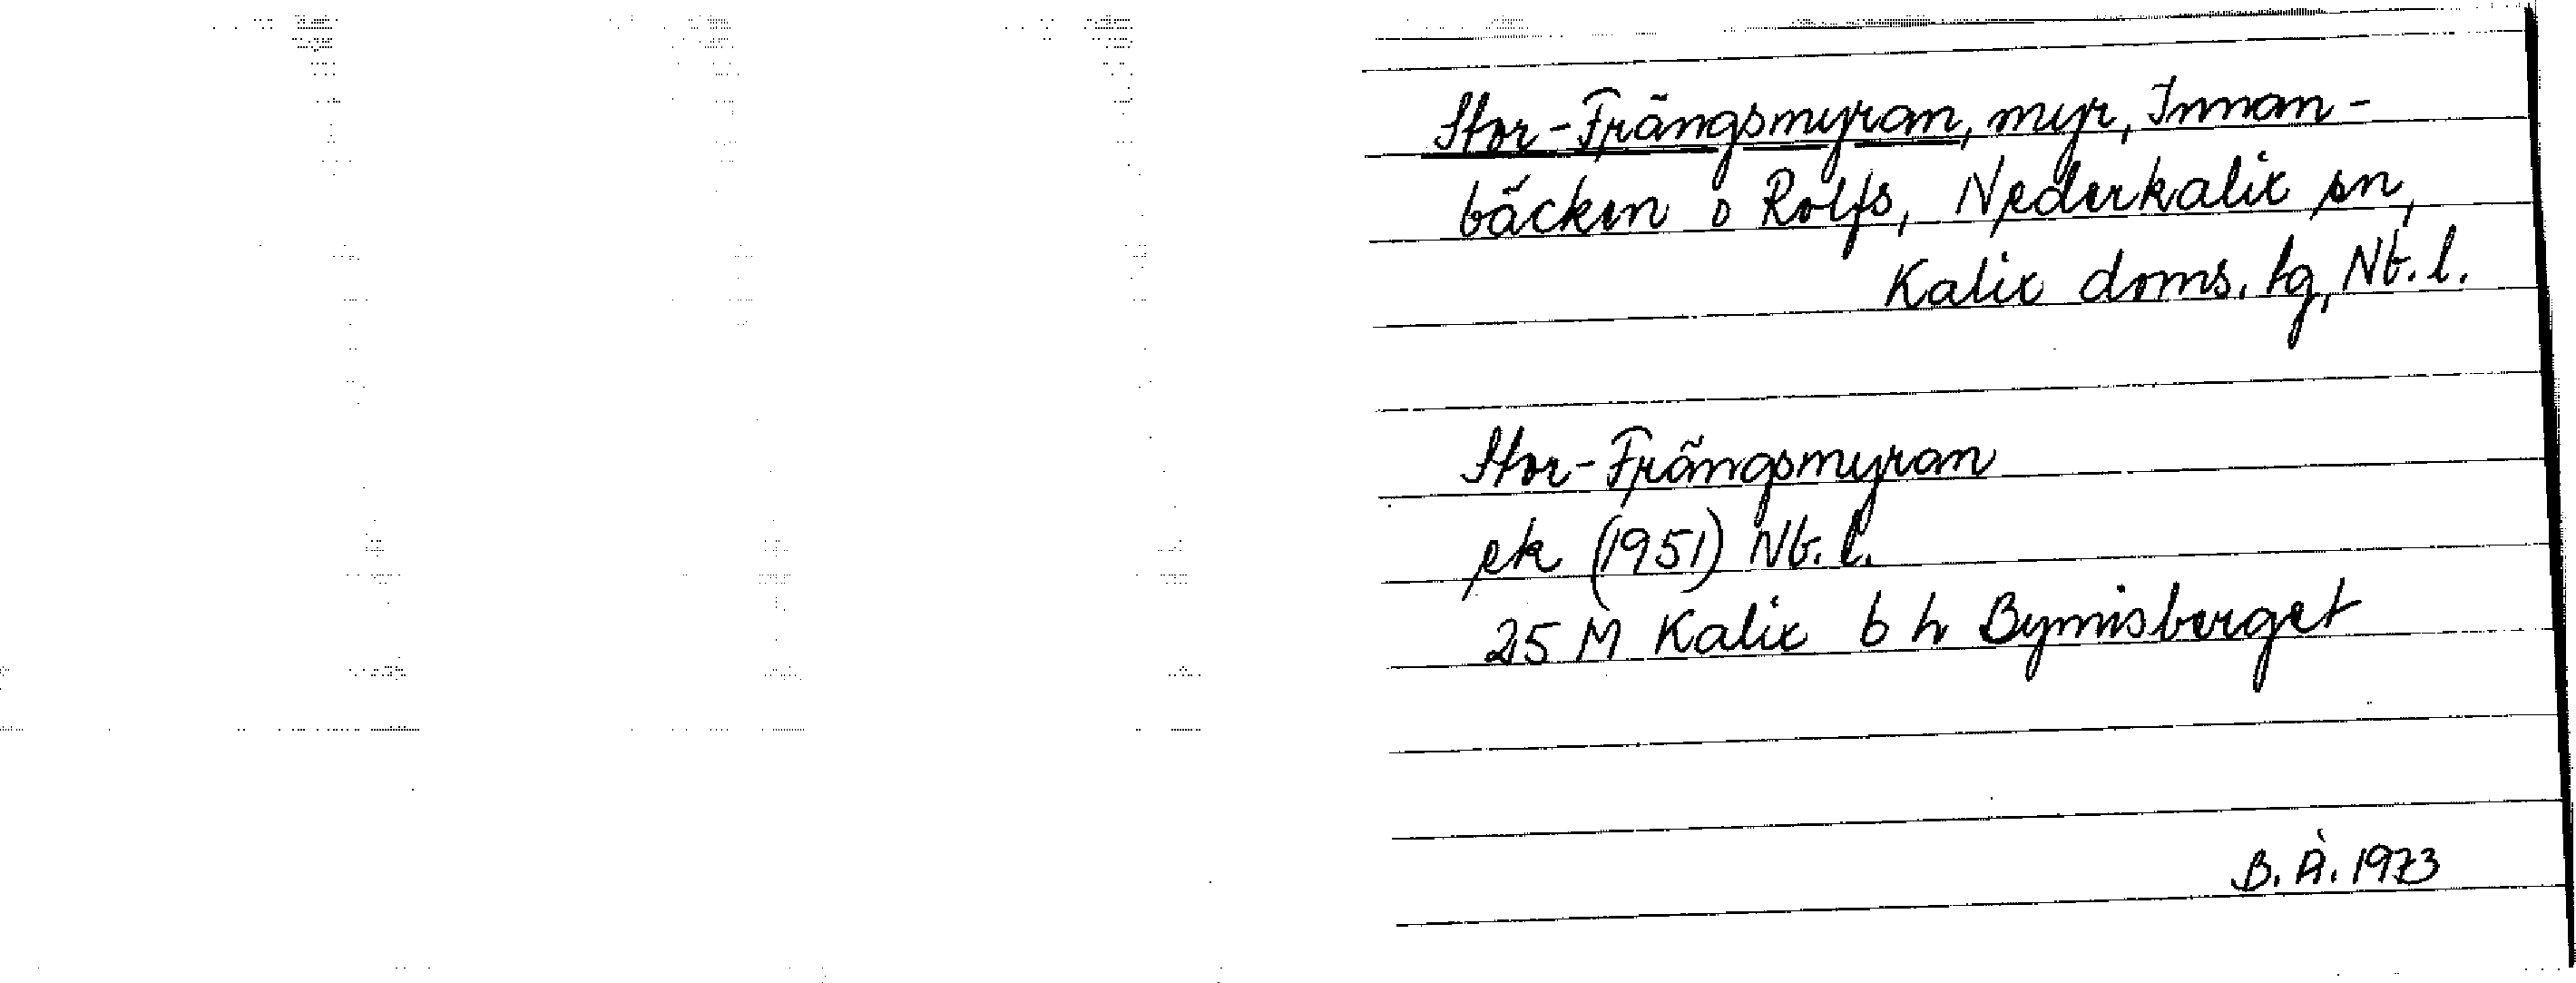 Stor-Frängsmyran, myr, Innan-
bäcken o Rolfs, Nederkalix sn,
Kalix doms. tg, Nb. l.
Stor-Frängsmyran
ek (1951) Nb. l.
25 M Kalix b h Bymisberget
B. Å. 1973